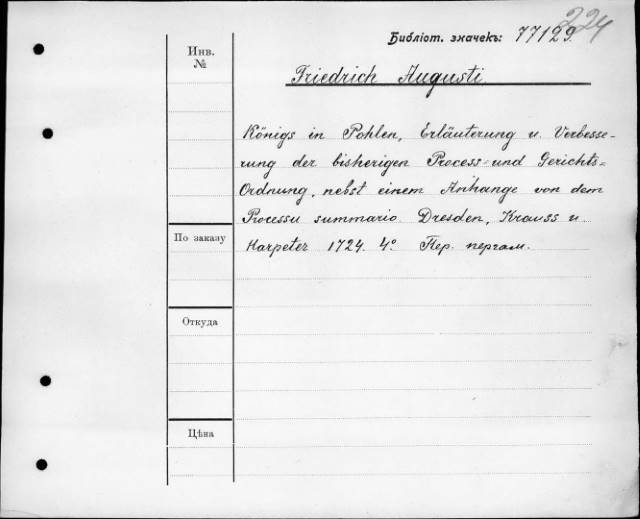 Библіот. значекъ: 77129.
224
Инв.
№
Friedrich Augusti.
Königs in Pohlen, Erläuterung u. Verbesse-
rung der bisherigen Process- und Gerichts=
Ordnung, nebst einem Anhange von dem
Processu summario. Dresden, Krauss u.
Harpeter 1724. 4° Пер. пергам.
По заказу
Откуда
Цѣна